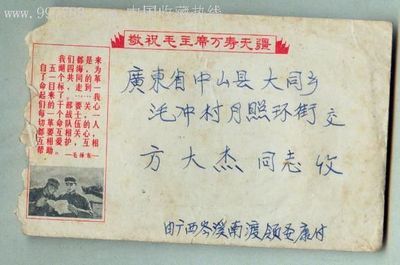 中国收藏热线
敬祝毛主席万寿无疆
我们都是来
自五湖四海,为
了一个共同的革
命目标,走到一
起来了。……我
们的干部要关心
每一个战士,一
切革命队伍的人
都要互相关心,
互相爱护,互相
帮助。
毛泽东
廣東省中山县大同乡
冲村月照环街交
方大杰同志收
由广西岑溪南渡领圣康付